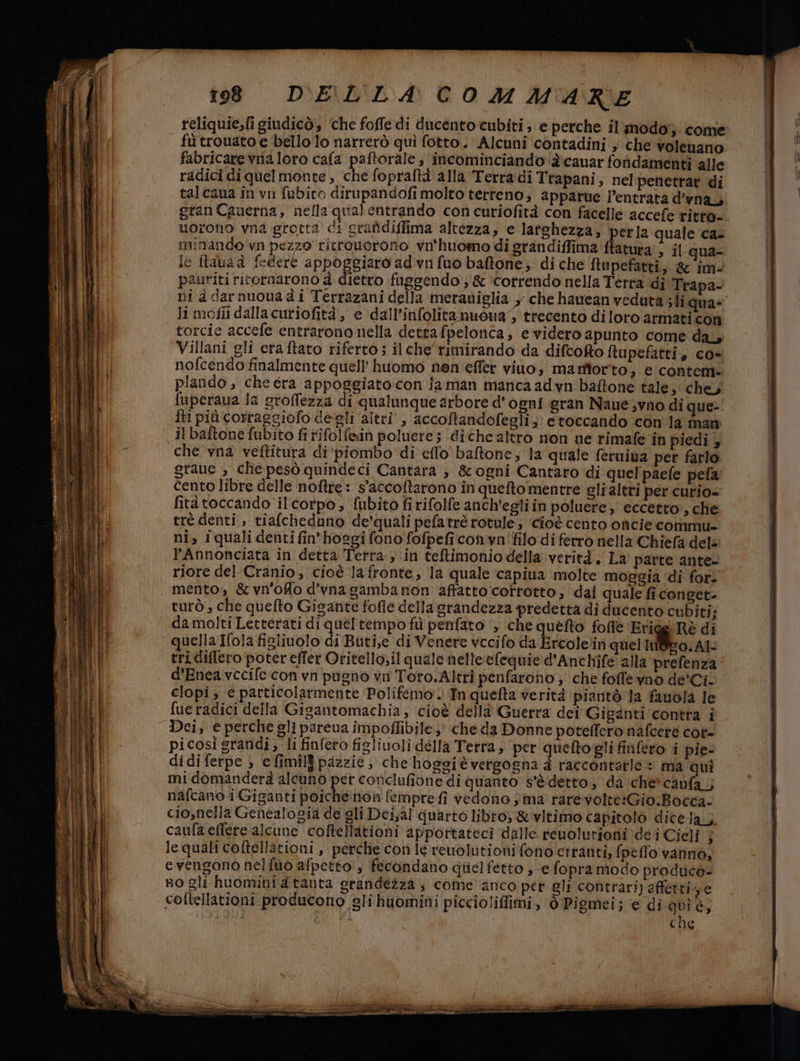 198 DELLA COMMARE
reliquie,ſi giudicò, che foſſe di ducento cubiti, e perche il modo, come
fù trouato e bello lo narrerò quì ſotto. Alcuni contadini, che voleuano
fabricare vna loro caſa paſtorale, incominciando à cauar fondamenti alle
radici di quel monte, che ſopraſtà alla Terra di Trapani, nel penetrar di
tal caua in vn ſubito dirupandoſi molto terreno, apparue l'entrata d'vna
gran Cauerna, neſſa qual entrando con curioſità con facelle acceſe ritro-
uorono vna grotta di grandiſſima altezza, e larghezza, per la quale ca-
minando vn pezzo ritrouorono vn'huomo di grandiſſima ſtatura, il qua-
le ſtauaà ſedere appoggiaro ad vn ſuo baſtone, di che ſtupefatti, & im-
pauriti ritornarono à dietro fuggendo, & correndo nella Terra di Trapa-
ni à dar nuoua di Terrazani della merauiglia, che haucan veduta; li qua-
li moſſi dalla curioſità, e dall'inſolita nuoua, trecento di loro armati con
torcie acceſe entrarono nella detta ſpelonca, e videro apunto come da
Villani gli era ſtato riferto; il che rimirando da diſcoſto ſtupefatti, co-
noſcendo finalmente quell'huomo non eſſer viuo, ma morto, e contem-
plando, che era appoggiato con la man manca ad vn baſtone tale, che
ſuperaua la groſſezza di qualunque arbore d'ogni gran Naue, vno di que-
ſti più corraggioſo degli altri, accoſtandoſegli, e toccando con la man
il baſtone ſubito ſi riſolſe in poluere; di che altro non ne rimaſe in piedi,
che vna veſtitura di piombo di eſſo baſtone, la quale ſeruiua per farlo
graue, che pesò quindeci Cantara, & ogni Cantaro di quel paeſe peſa
cento libre delle noſtre: s'accoſtarono in queſto mentre gli altri per curio-
ſità toccando il corpo, ſubito ſi riſolſe anch'egli in poluere, eccetto, che
trè denti, tiaſcheduno de'quali peſa trè rotule, cioè cento oncie commu-
ni, i quali denti fin'hoggi ſono ſoſpeſi con vn filo di ferro nella Chieſa del-
l'Annonciata in detta Terra, in teſtimonio della verità. La parte ante-
riore del Cranio, cioè la fronte, la quale capiua molte moggia di for-
mento, & vn'oſſo d'vna gamba non affatto corrotto, dal quale ſi conget-
turò, che queſto Gigante foſſe della grandezza predetta di ducento cubiti;
da molti Letterati di quel tempo fù penſato, che queſto foſſe Erice Rè di
quella Iſola figliuolo di Butie,e di Venere vcciſo da Ercole in quel luogo. Al-
tri diſſero poter eſſer Oritello,il quale nelle eſequie d'Anchiſe alla preſenza
d'Enea vcciſe con vn pugno vn Toro.Altri penſarono, che foſſe vno de'Ci-
clopi, e particolarmente Polifemo. In queſta verità piantò la fauola le
ſue radici della Gigantomachia, cioè della Guerra dei Giganti contra i
Dei, e perche gli pareua impoſſibile, che da Donne poteſſero naſcere cor-
pi così grandi, li finſero figliuoli della Terra, per queſto gli finſero i pie-
di di ſerpe, e ſimili pazzie, che hoggi è vergogna à raccontarle: ma quì
mi domanderà alcuno per concluſione di quanto s'è detto, da che cauſa
naſcano i Giganti poiche non ſempre ſi vedono, ma rare volte:Gio.Bocca-
cio,nella Genealogia de gli Dei,al quarto libro, & vltimo capitolo dice la
cauſa eſſere alcune coſtellationi apportateci dalle reuolutioni dei Cieli;
le quali coſtellationi, perche con le reuolutioni ſono erranti, ſpeſſo vanno,
e vengono nel ſuo aſpetto, fecondano quel fetto, e ſopra modo produco-
no gli huomini à tanta grandezza, come anco per gli contrarij affetti, e
coſtellationi producono gli huomini piccioliſſimi, ò Pigmei; e di quì è,
che